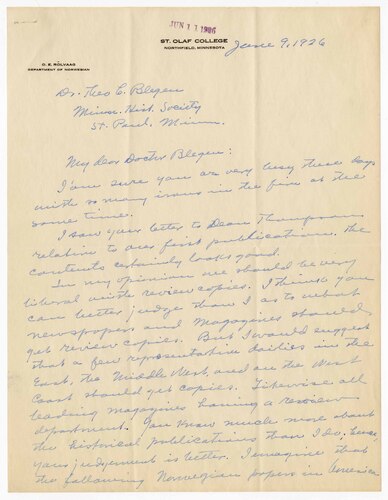 JUN 11 1926
ST. OLAF COLLEGE
NORTHFIELD, MINNESOTA
June 9, 1926
O. E. RÖLVAAG
DEPARTMENT OF NORWEGIAN
Dr. Theo C. Blegen
Minn. Hist. Society
St. Paul, Minn.
My dear Doctor Blegen:
I am sure you are very busy these days
with so many irons in the fire at the
same time.
I saw your letter to Dean Thompson
relative to our first publication. The
contents certainly looks good.
In my opinion we should be very
liberal with review copies. I think you
can better judge than I as to what
newspapers and magazines should
get review copies. But I would suggest
that a few representative dailies in the
East, the Middle West, and on the West
Coast should get copies. Likewise all
leading magazines having a review
department. You know much more about
the historical publications than I do, hence
your judgement is better. I imagine that
the following Norwegian papers in America